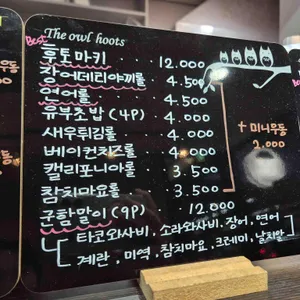 The owl hoots
Best
후토마키 · · 12.000
장어데리야끼롤 · 4.500
연어롤 · · · 4.500
유부초밥 (4P) · 4.000
새우튀김롤 · · 4.000
베이컨치즈롤 · 4.000
캘리포니아롤 · 3.500
참치마요롤 · · 3.500
+ 미니우동
2.000
군함말이 (9P) 12.000
타코와사비, 소라와사비, 장어, 연어
계란, 미역, 참치마요, 크레미, 날치알